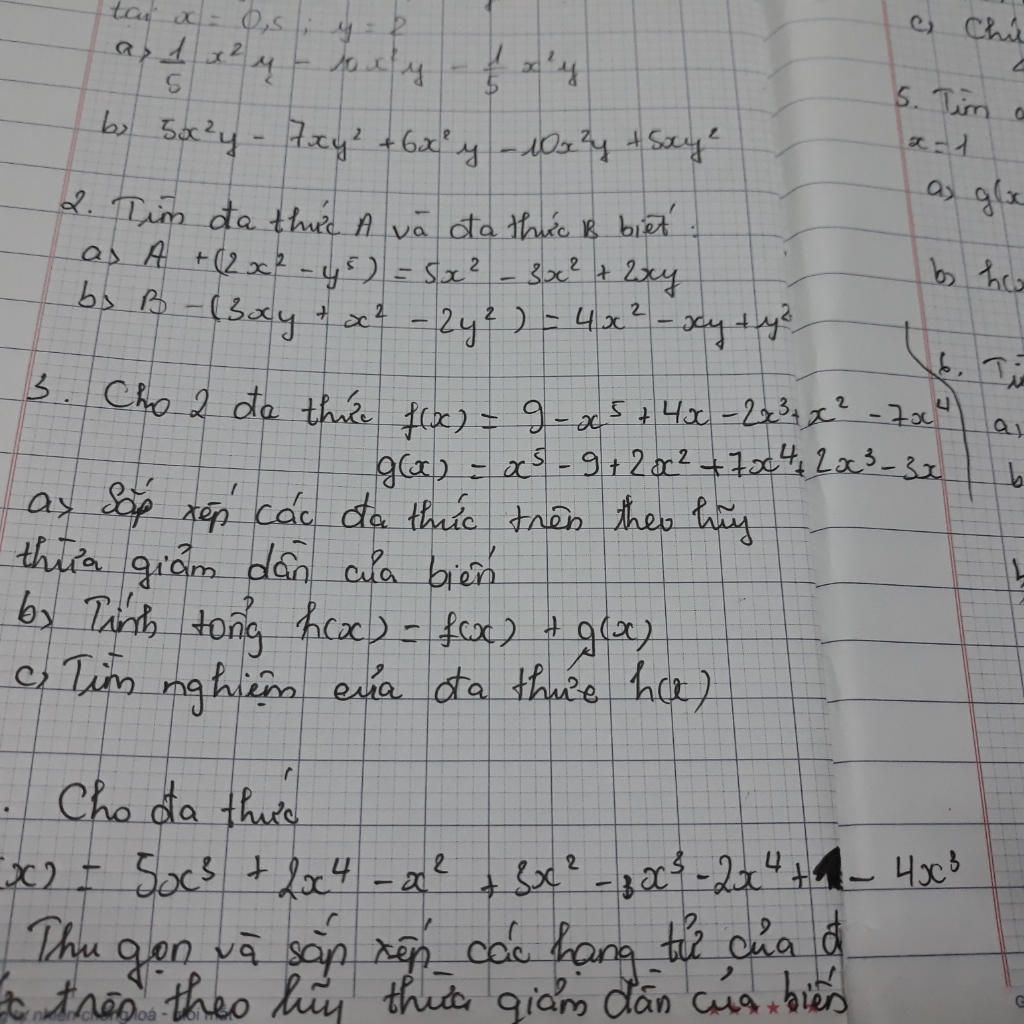 tại x = 0,5 ; y = 2
a) 1/5 x²y - 10x²y - 1/5 x²y
b) 5x²y - 7xy² + 6x²y - 10x²y + 5xy²
2. Tìm đa thức A và đa thức B biết :
a) A + (2x² - y⁵) = 5x² - 3x² + 2xy
b) B - (3xy + x² - 2y²) = 4x² - xy + y²
3. Cho 2 đa thức f(x) = 9 - x⁵ + 4x - 2x³ + x² - 7x⁴
g(x) = x⁵ - 9 + 2x² + 7x⁴ + 2x³ - 3x
a) Sắp xếp các đa thức trên theo lũy
thừa giảm dần của biến
b) Tính tổng h(x) = f(x) + g(x)
c) Tìm nghiệm của đa thức h(x)
. Cho đa thức
(x) = 5x³ + 2x⁴ - x² + 3x² - x³ - 2x⁴ + 1 - 4x³
Thu gọn và sắp xếp các hạng tử của đ
trên theo lũy thừa giảm dần của biến
c) Chứ
5. Tìm
x = 1
a) g(x
b) h(x
6. Tì
a)
b